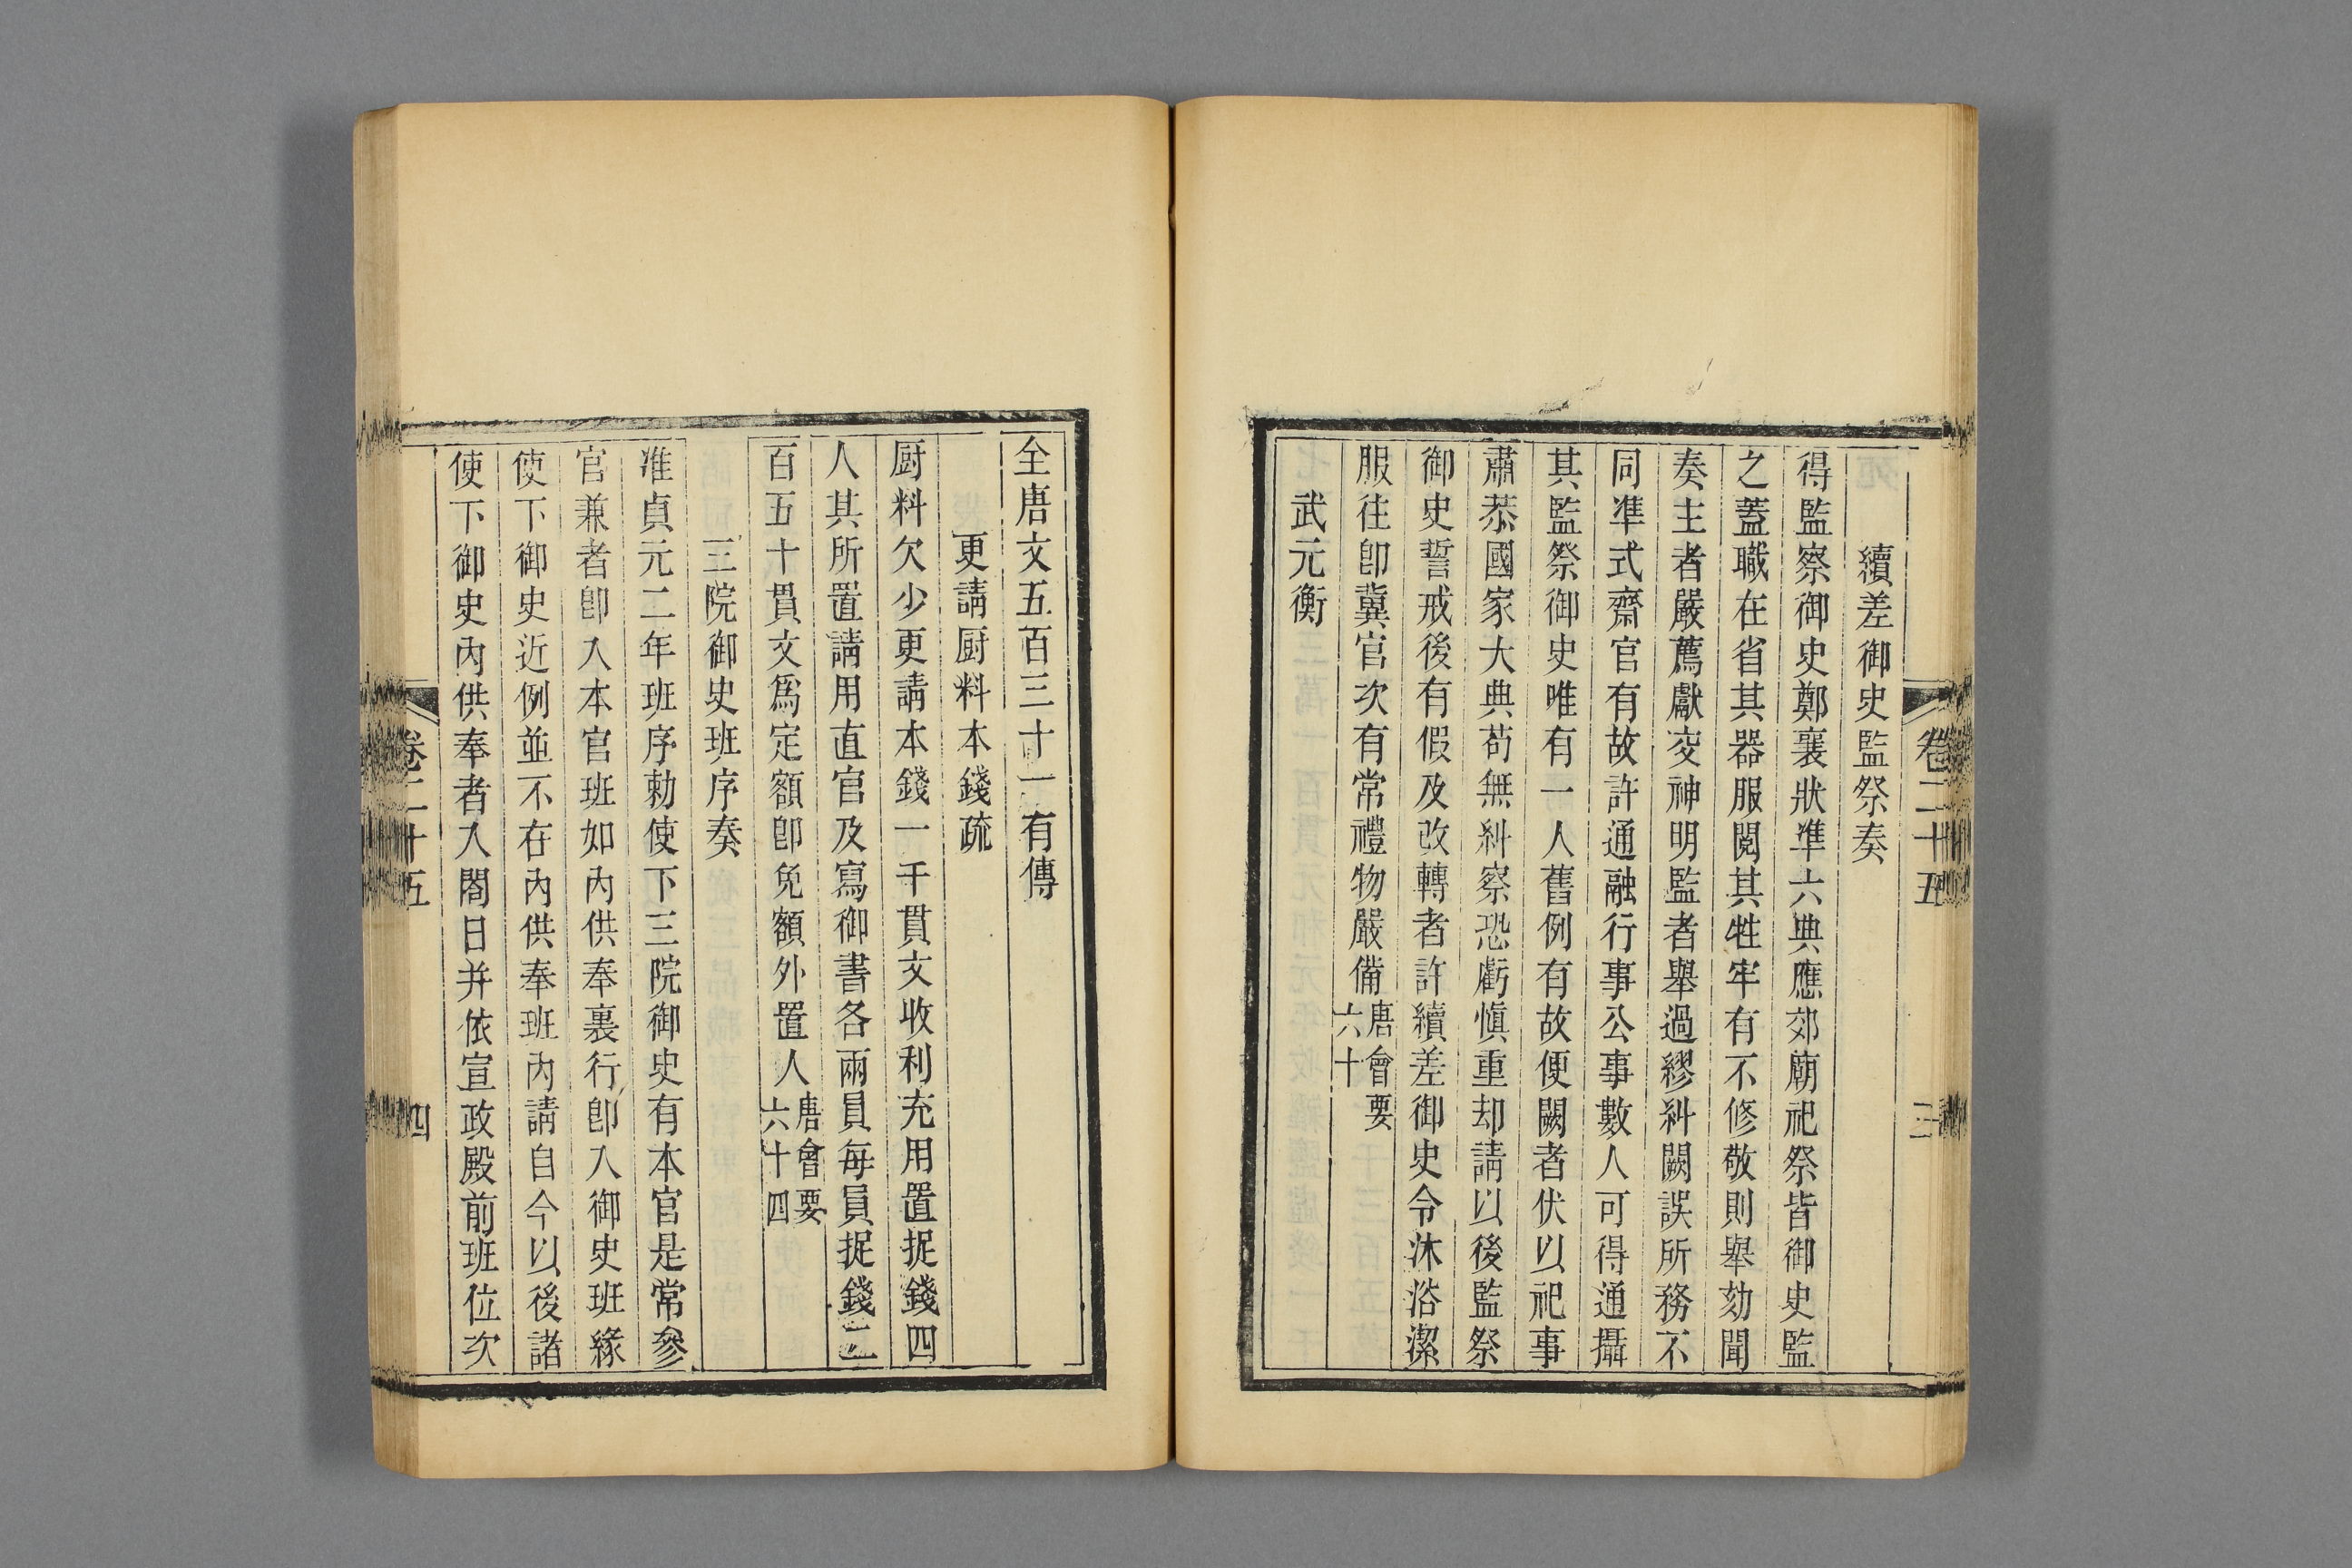 續差御史監祭奏
得監察御史鄭襄狀準六典應郊廟祀祭皆御史監
之蓋職在省其器服閱其牲牢有不修敬則舉劾聞
奏主者嚴薦獻交神明監者舉過繆糾闕誤所務不
同準式齋官有故許通融行事公事數人可得通攝
其監祭御史唯有一人舊例有故便闕者伏以祀事
肅恭國家大典苟無糾察恐虧愼重却請以後監祭
御史誓戒後有假及改轉者許續差御史令沐浴潔
服往卽冀官次有常禮物嚴備唐會要六十
武元衡
卷二十五
三
全唐文五百三十一有傳
更請厨料本錢疏
厨料欠少更請本錢一千貫文收利充用置捉錢四
人其所置請用直官及寫御書各兩員每員捉錢二
百五十貫文爲定額卽免額外置人唐會要六十四
三院御史班序奏
准貞元二年班序勅使下三院御史有本官是常參
官兼者卽入本官班如內供奉裏行卽入御史班緣
使下御史近例並不在內供奉班內請自今以後諸
使下御史內供奉者入閤日并依宣政殿前班位次
卷二十五
四